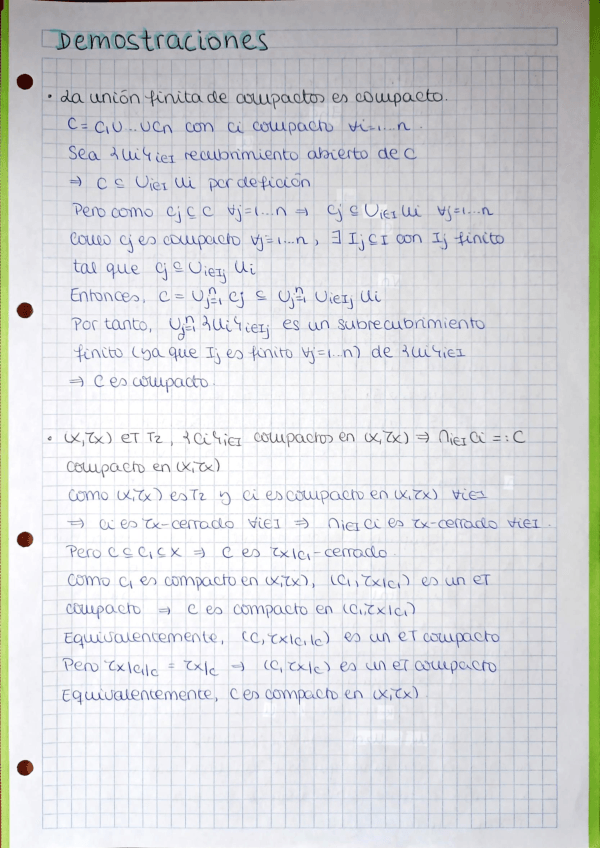 Demostraciones
· La unión finita de compactos es compacto.
C = C₁∪...∪Cn con Ci compacto ∀i=1...n.
Sea {Ui}i∈I recubrimiento abierto de C
⇒ C ⊆ ∪i∈I Ui por defición
Pero como Cj ⊆ C ∀j=1...n ⇒ Cj ⊆ ∪i∈I Ui ∀j=1...n
Como Cj es compacto ∀j=1...n, ∃ Ij ⊆ I con Ij finito
tal que Cj ⊆ ∪i∈Ij Ui
Entonces, C = ∪j=1ⁿ Cj ⊆ ∪j=1ⁿ ∪i∈Ij Ui
Por tanto, ∪j=1ⁿ {Ui}i∈Ij es un subrecubrimiento
finito (ya que Ij es finito ∀j=1...n) de {Ui}i∈I
⇒ C es compacto.
· (X,τx) eT T2, {Ci}i∈I compactos en (X,τx) ⇒ ∩i∈I Ci =: C
compacto en (X,τx)
Como (X,τx) es T2 y Ci es compacto en (X,τx) ∀i∈I
⇒ Ci es τx-cerrado ∀i∈I ⇒ ∩i∈I Ci es τx-cerrado ∀i∈I.
Pero C ⊆ C₁ ⊆ X ⇒ C es τx|C₁-cerrado.
Como C₁ es compacto en (X,τx), (C₁,τx|C₁) es un eT
compacto ⇒ C es compacto en (C₁,τx|C₁)
Equivalentemente, (C,τx|C₁|C) es un eT compacto
Pero τx|C₁|C = τx|C ⇒ (C,τx|C) es un eT compacto
Equivalentemente, C es compacto en (X,τx).